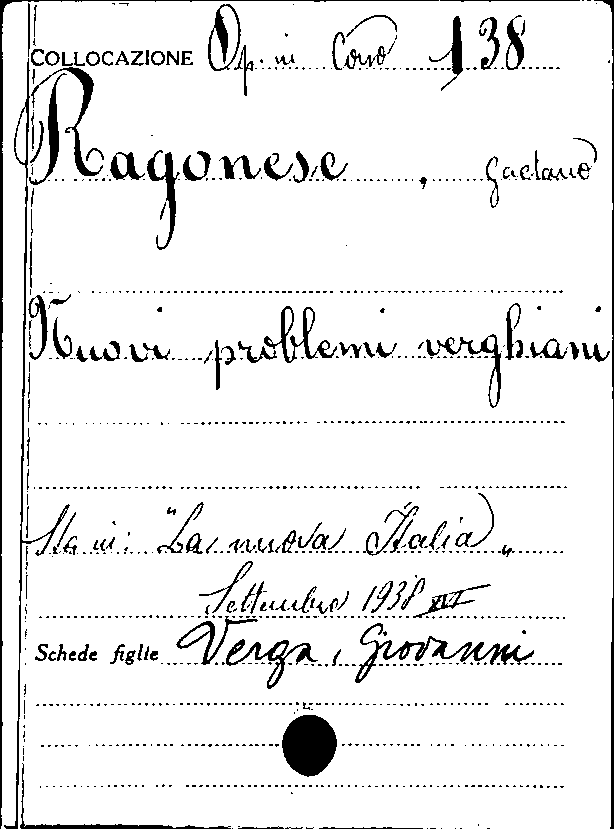 COLLOCAZIONE Op. in Corso 138
Ragonese, Gaetano
Nuovi problemi verghiani
Sta in: "La nuova Italia„
Settembre 1938 XVI
Schede figlie Verga, Giovanni